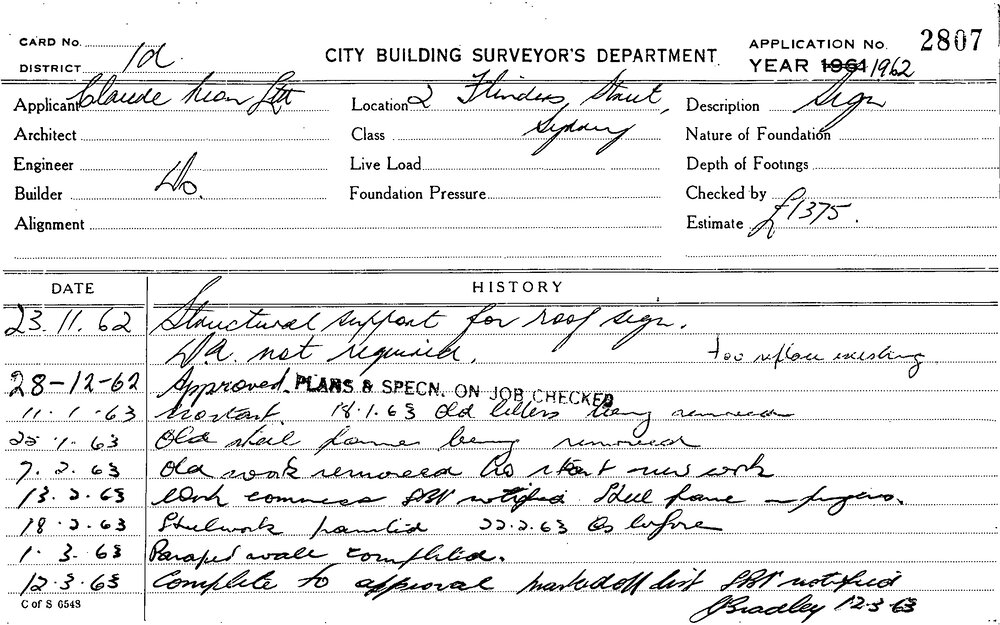 CARD No.
DISTRICT 1d.
CITY BUILDING SURVEYOR'S DEPARTMENT
APPLICATION No. 2807
YEAR 1961 1962
Applicant Claude Neon Ltd
Location 2 Flinders Street,
Sydney
Description Sign
Architect
Class
Nature of Foundation
Engineer
Live Load
Depth of Footings
Builder Do.
Foundation Pressure
Checked by
Alignment
Estimate £1375.
DATE HISTORY
23.11.62 Structural support for roof sign.
D.A. not required. to replace existing
28-12-62 Approved. PLANS & SPECN. ON JOB CHECKED
11.1.63 No start 18.1.63 Old letters being removed
25.1.63 Old steel frames being removed
7.2.63 Old work removed No start new work
13.2.63 Work commences notified Steel frame in progress.
18.2.63 Steelwork painted 22.2.63 As before
1.3.63 Parapet wall completed.
12.3.63 Complete to approval marked off list notified
JBradley 12.3.63
C of S 6548